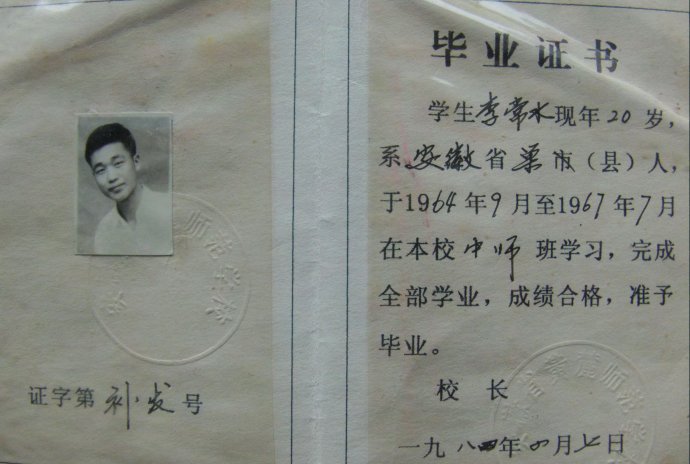 证字第补发号
毕业证书
学生李常水现年20岁，
系安徽省巢市（县）人，
于1964年9月至1967年7月
在本校中师班学习，完成
全部学业，成绩合格，准予
毕业。
校长
一九八四年 月七日